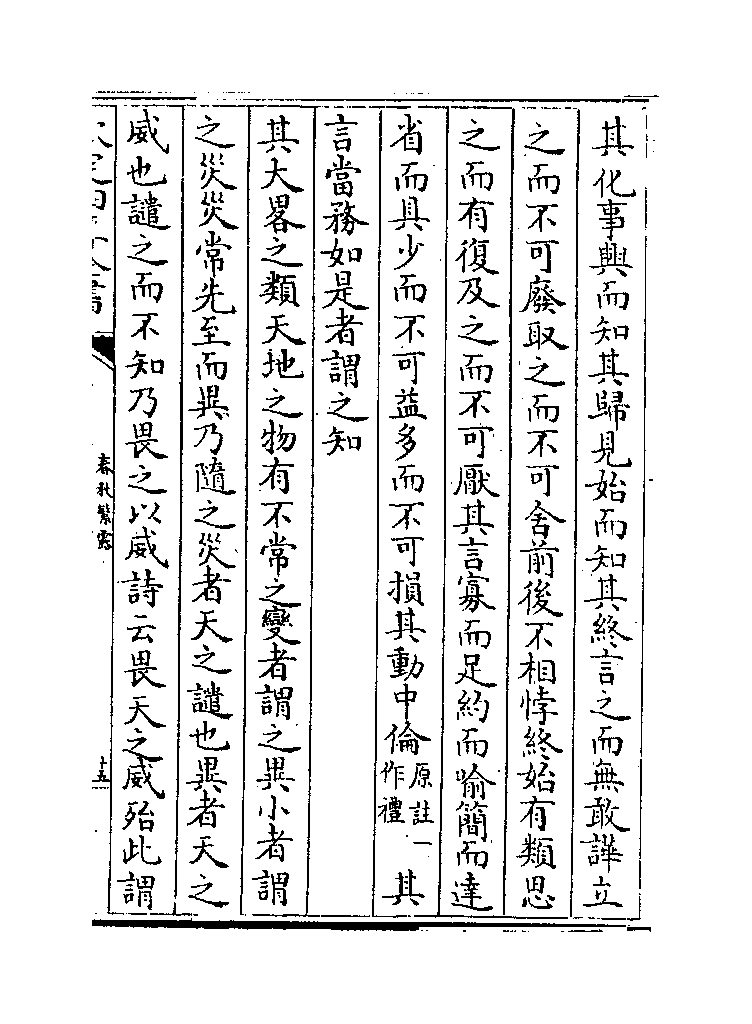 其化事興而知其歸見始而知其終言之而無敢譁立
之而不可廢取之而不可舍前後不相悖終始有類思
之而有復及之而不可厭其言寡而足約而喻簡而達
省而具少而不可益多而不可損其動中倫原註一作禮其
言當務如是者謂之知
其大畧之類天地之物有不常之變者謂之異小者謂
之災災常先至而異乃隨之災者天之譴也異者天之
威也譴之而不知乃畏之以威詩云畏天之威殆此謂
春秋繁露
十五